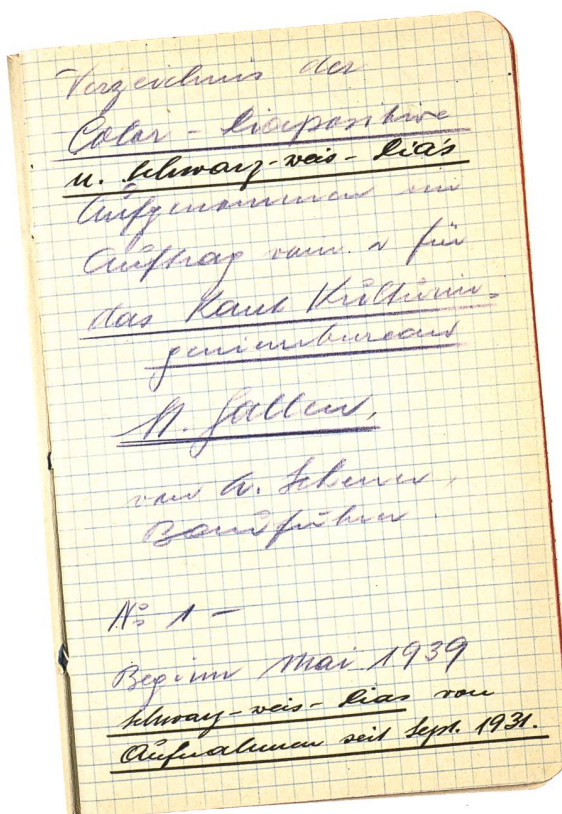 Verzeichnis der
Color - Diapositive
u. schwarz-weis-Dia's
Aufgenommen im
Auftrag vom u für
das Kant Kulturin-
genieurbureau
St. Gallen,
von A. Scherrer,
Bauführer
No 1 –
Beginn Mai 1939
schwarz-weis-Dias von
Aufnahmen seit Sept. 1931.